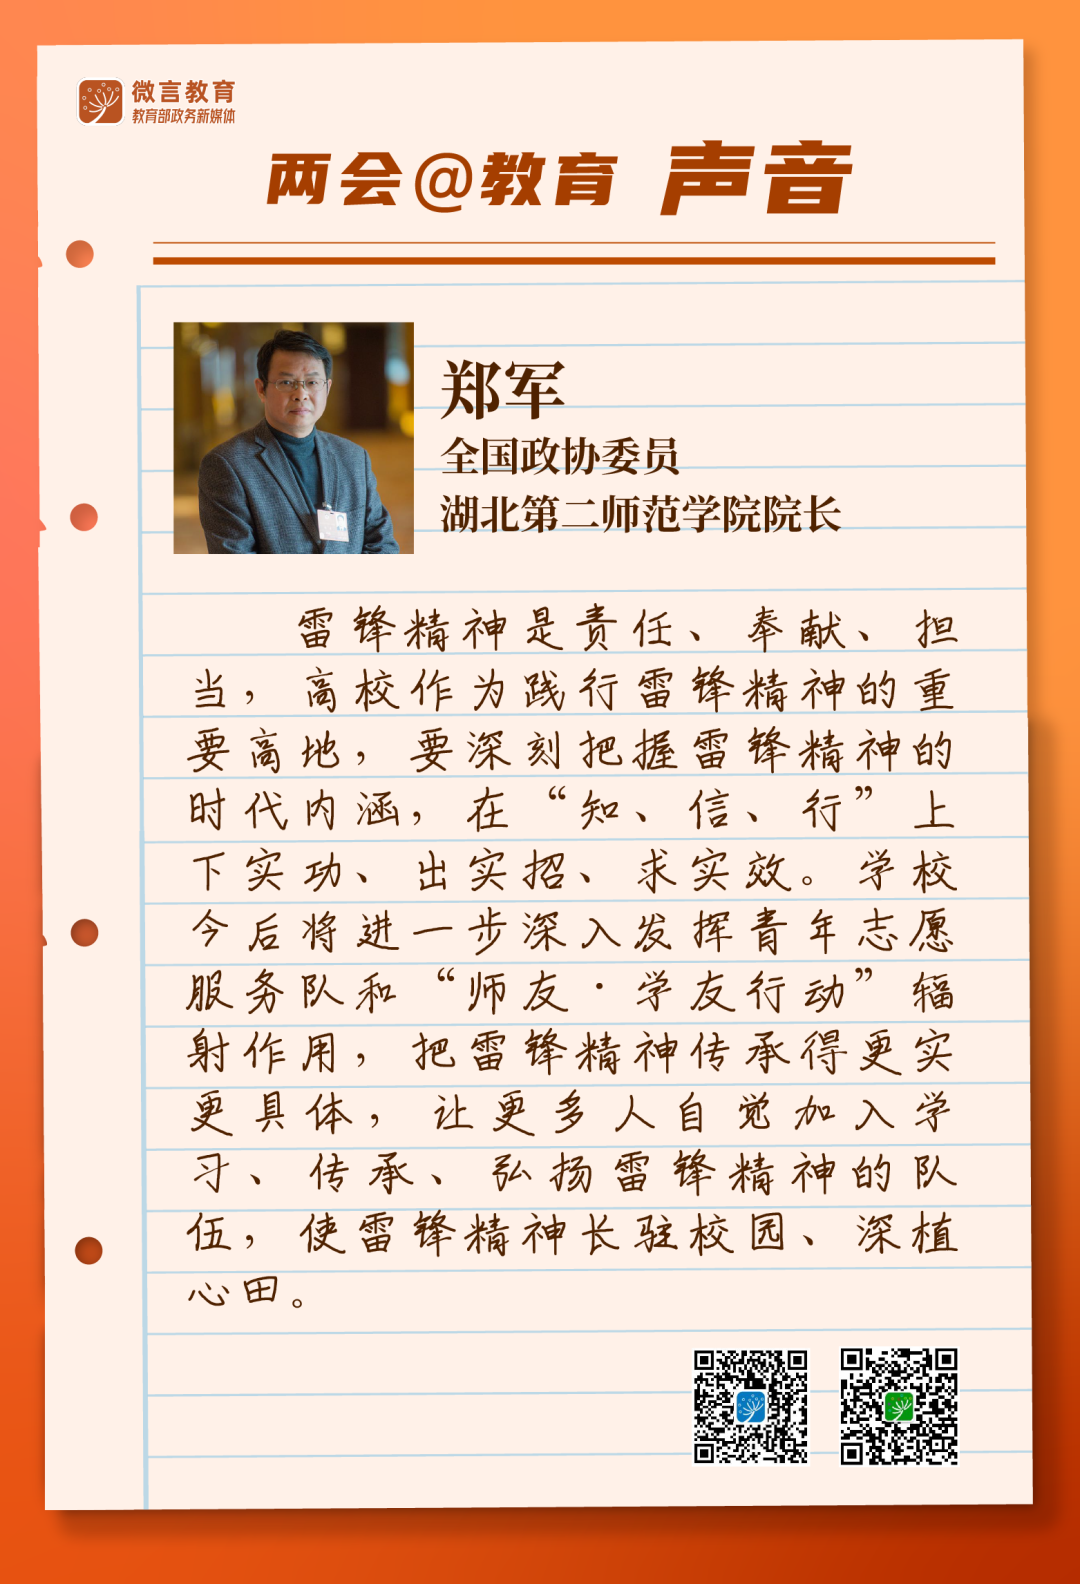 微言教育
教育部政务新媒体
两会@教育 声音
郑军
全国政协委员
湖北第二师范学院院长
雷锋精神是责任、奉献、担
当，高校作为践行雷锋精神的重
要高地，要深刻把握雷锋精神的
时代内涵，在“知、信、行”上
下实功、出实招、求实效。学校
今后将进一步深入发挥青年志愿
服务队和“师友·学友行动”辐
射作用，把雷锋精神传承得更实
更具体，让更多人自觉加入学
习、传承、弘扬雷锋精神的队
伍，使雷锋精神长驻校园、深植
心田。